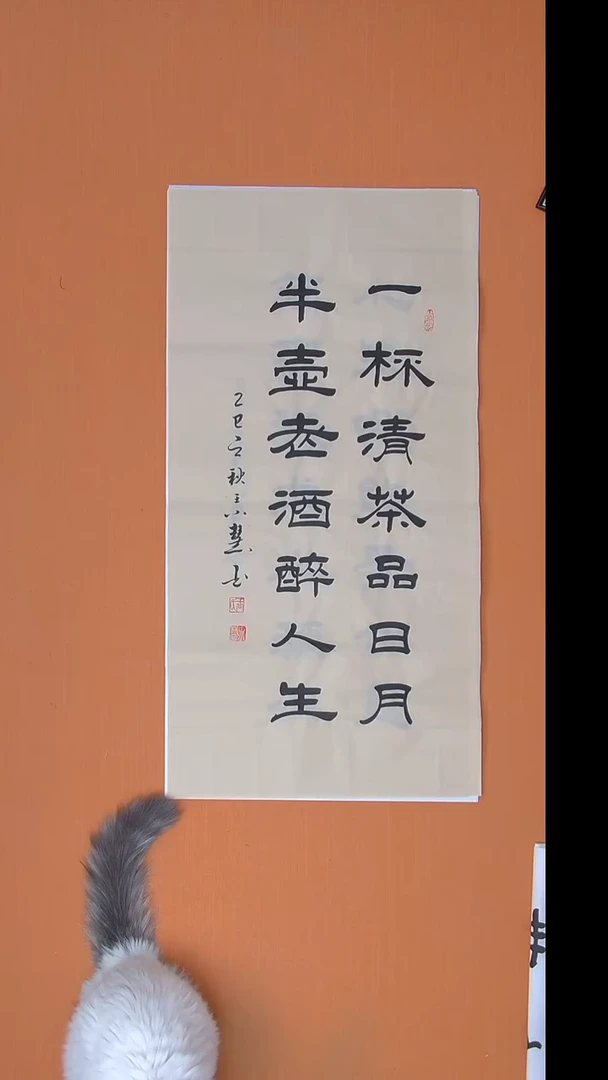 一杯清茶品日月
半壶老酒醉人生
乙巳之秋